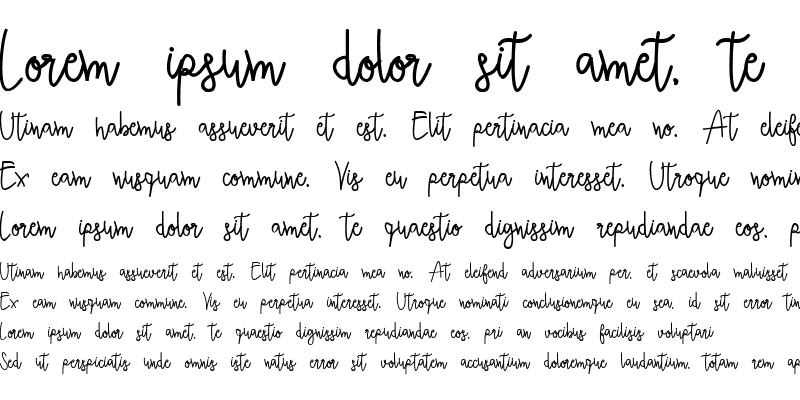 Lorem ipsum dolor sit amet, te
Utinam habemus assueverit et est. Elit pertinacia mea no. At eleifend
Ex eam nusquam commune. Vis eu perpetua interesset. Utroque nomin
Lorem ipsum dolor sit amet, te quaestio dignissim repudiandae eos, p
Utinam habemus assueverit et est. Elit pertinacia mea no. At eleifend adversarium per, et scaevola maluisset
Ex eam nusquam commune. Vis eu perpetua interesset. Utroque nominati conclusionemque eu sea, id sit error tin
Lorem ipsum dolor sit amet, te quaestio dignissim repudiandae eos, pri an vocibus facilisis voluptari
Sed ut perspiciatis unde omnis iste natus error sit voluptatem accusantium doloremque laudantium, totam rem ap